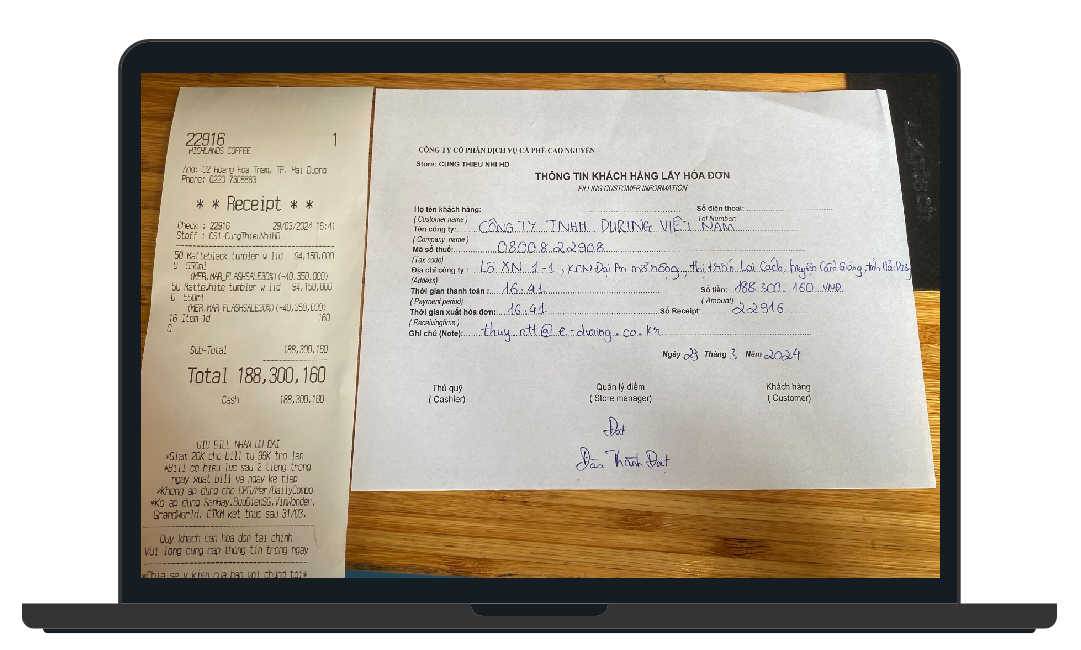 22916 1
HIGHLANDS COFFEE
Add: 02 Hoang Hoa Tham, TP. Hai Duong
Phone: 0220 7308883
* * Receipt * *
Check : 22916 29/03/2024 16:41
Staff : CS1-CungThieuNhiHD
50 Matteblack tumbler w lid 94,150,000
U 550ml
(MER.MAR_FLASHSALE30%)(-40,350,000)
50 Mattewhite tumbler w lid 94,150,000
U 550ml
(MER.MAR_FLASHSALE30%)(-40,350,000)
16 Item 1d 160
C
Sub-Total 188,300,160
Total 188,300,160
Cash 188,300,160
GIU BILL NHAN UU DAI
*Giam 20K cho bill tu 99K tro len
*Bill co hieu luc sau 2 tieng trong
ngay xuat bill va ngay ke tiep
*Khong ap dung cho DRG/Mer/DailyCombo
*Ko ap dung SanBay,BuuDienSG,VinWonder,
GrandWorld. CTKM ket thuc sau 31/03.
Quy khach can hoa don tai chinh
Vui long cung cap thong tin trong ngay
*Chia se y kien cua ban voi chung toi*
CÔNG TY CỔ PHẦN DỊCH VỤ CÀ PHÊ CAO NGUYÊN
Store: CUNG THIEU NHI HD
THÔNG TIN KHÁCH HÀNG LẤY HÓA ĐƠN
FILLING CUSTOMER INFORMATION
Họ tên khách hàng: Số điện thoại:
( Customer name ) Lot Number:
Tên công ty: CÔNG TY TNHH DURING VIỆT NAM
( Company name )
Mã số thuế: 0800822908
(Tax code)
Địa chỉ công ty : Lô XN 1-1, KCN Đại An mở rộng, thị trấn Lai Cách, huyện Cẩm Giàng, tỉnh Hải Dương
(Address)
Thời gian thanh toán : 16:41 Số tiền: 188.300.160 VND
( Payment period) ( Amount)
Thời gian xuất hóa đơn: 16:41 Số Receipt 22916
( Receivingtime )
Ghi chú (Note): thuy.ntt@e-during.co.kr
Ngày 29 Tháng 3 Năm 2024
Thủ quỹ Quản lý điểm Khách hàng
( Cashier) ( Store manager) ( Customer)
Đạt
Đào Thành Đạt